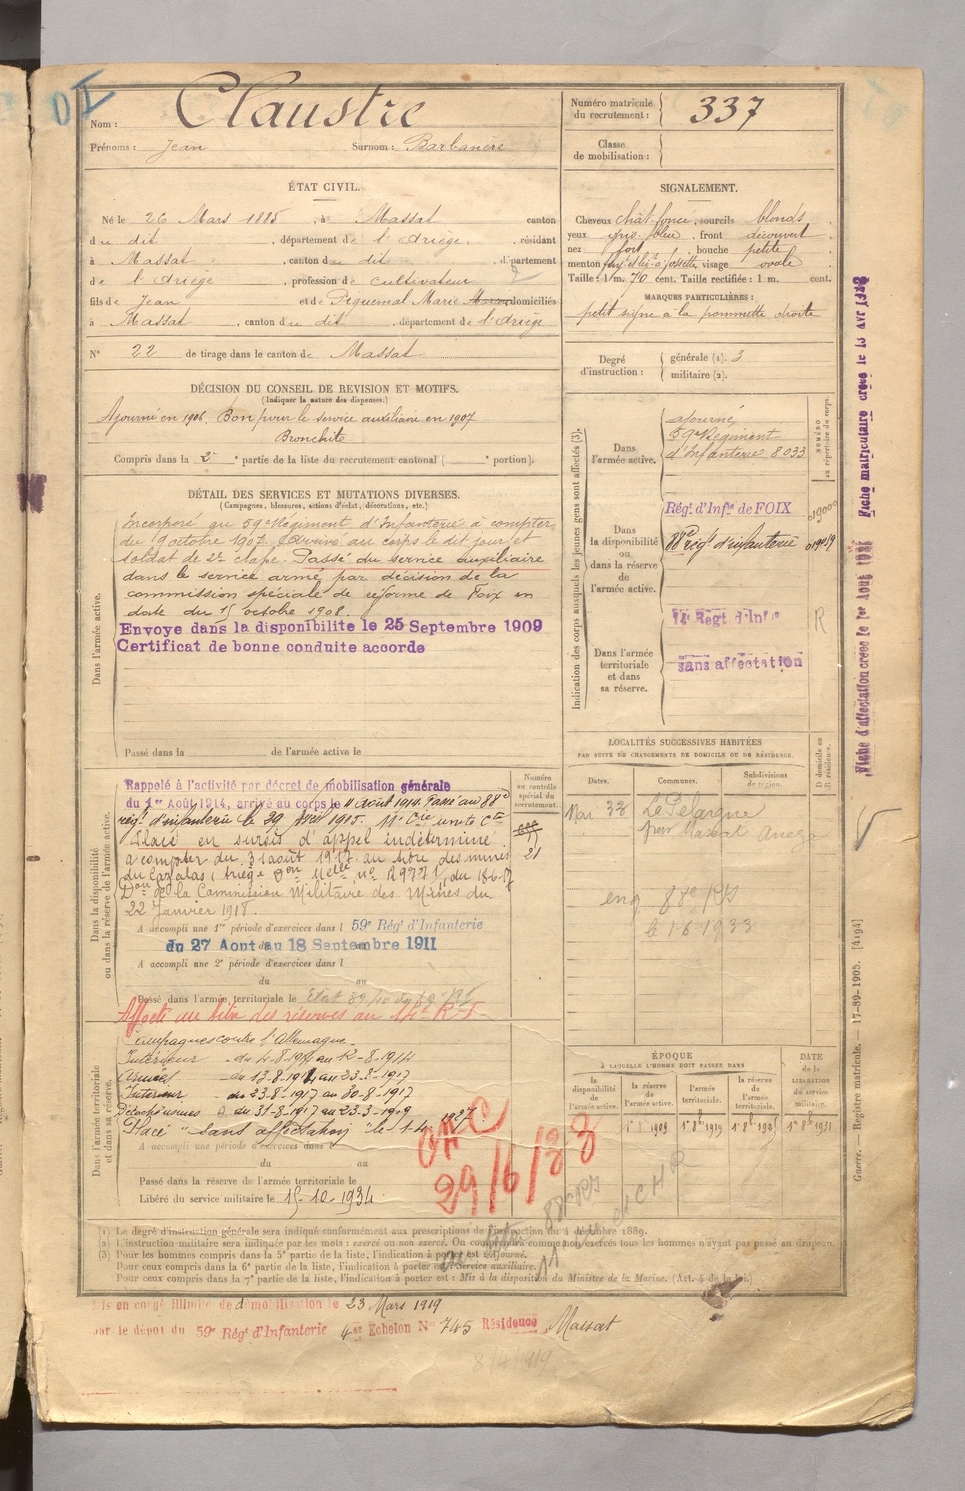 Nom : Claustre
Prénoms : Jean Surnom : Barbanère
Numéro matricule du recrutement : 337
Classe de mobilisation :
ÉTAT CIVIL.
Né le 26 Mars 1885, à Massat canton
du dit, département de l'Ariège, résidant
à Massat, canton du dit, département
de l'Ariège, profession de cultivateur
fils de Jean et de Piquemal Marie domiciliés
à Massat, canton du dit, département de l'Ariège
N° 22 de tirage dans le canton de Massat
SIGNALEMENT.
Cheveux chât. foncé, sourcils blonds
yeux gris bleu, front découvert
nez fort, bouche petite
menton à fossette visage ovale
Taille : 1 m. 70 cent. Taille rectifiée : 1 m. cent.
MARQUES PARTICULIÈRES :
petit signe à la pommette droite
Degré d'instruction : générale (1). 3
militaire (2).
DÉCISION DU CONSEIL DE REVISION ET MOTIFS.
(Indiquer la nature des dispenses.)
Ajourné en 1906. Bon pour le service auxiliaire en 1907
Bronchite
Compris dans la 2e partie de la liste du recrutement cantonal ( e portion).
DÉTAIL DES SERVICES ET MUTATIONS DIVERSES.
(Campagnes, blessures, actions d'éclat, décorations, etc.)
Dans l'armée active.
Incorporé au 59e Régiment d'Infanterie à compter
du 9 octobre 1907. Arrivé au corps le dit jour et
soldat de 2e classe. Passé du service auxiliaire
dans le service armé par décision de la
commission spéciale de réforme de Foix en
date du 15 octobre 1908.
Envoye dans la disponibilite le 25 Septembre 1909
Certificat de bonne conduite accorde
Passé dans la de l'armée active le
Indication des corps auxquels les jeunes gens sont affectés (3).
NUMÉRO au répertoire du corps.
Dans l'armée active.
ajourné
59e Régiment
d'Infanterie 8033
Dans la disponibilité ou dans la réserve de l'armée active.
Régt d'Infie de FOIX
88e régt d'infanterie
Dans l'armée territoriale et dans sa réserve.
14e Régt d'Infie
R
sans affectation
Fiche matriculaire créée le 13 Avr 1928
Fiche d'affectation créée le 1er Août 1931
Dans la disponibilité ou dans la réserve de l'armée active.
Numéro au contrôle spécial du recrutement.
21
Rappelé à l'activité par décret de mobilisation générale
du 1er Août 1914, arrivé au corps le 11 août 1914. Passé au 88e
régt d'infanterie le 29 Avril 1915.
Placé en sursis d'appel indéterminé
à compter du 31 août 1917 au titre des mines
du Cazalas, Ariège
de la Commission Militaire des Mines du
22 Janvier 1918.
A accompli une 1re période d'exercices dans l 59e Régt d'Infanterie
du 27 Aout au 18 Septembre 1911
A accompli une 2e période d'exercices dans l
du au
Passé dans l'armée territoriale le
Affecté au titre des réserves au 14e R.I.
LOCALITÉS SUCCESSIVES HABITÉES
PAR SUITE DE CHANGEMENTS DE DOMICILE OU DE RÉSIDENCE.
Dates. Communes. Subdivisions de région. D domicile ou R résidence.
Mai 33 Le Pelargue
par Massat Ariège
88e RI
le 1.6.1933
Dans l'armée territoriale et dans sa réserve.
Campagnes contre l'Allemagne
Intérieur du 4-8-1914 au 12-8-1914
Armées du 13-8-1914 au 23-8-1917
Intérieur du 23-8-1917 au 30-8-1917
Détaché usines du 31-8-1917 au 23-3-1919
Placé "sans affectation" le 1-4-1927.
A accompli une période d'exercices dans l
du au
Passé dans la réserve de l'armée territoriale le
Libéré du service militaire le 15-10-1934.
29/6/33
ÉPOQUE
À LAQUELLE L'HOMME DOIT PASSER DANS
la disponibilité de l'armée active. la réserve de l'armée active. l'armée territoriale. la réserve de l'armée territoriale.
DATE de la LIBÉRATION du service militaire.
1er 8bre 1909 1er 8bre 1919 1er 8bre 1925 1er 8bre 1931
Guerre. — Registre matricule. — 17-89-1905. [4194]
(1) Le degré d'instruction générale sera indiqué conformément aux prescriptions de l'instruction du 4 décembre 1889.
(2) L'instruction militaire sera indiquée par les mots : exercé ou non exercé. On comprendra comme non exercés tous les hommes n'ayant pas passé au drapeau.
(3) Pour les hommes compris dans la 5e partie de la liste, l'indication à porter est : Ajourné.
Pour ceux compris dans la 6e partie de la liste, l'indication à porter est : Service auxiliaire.
Pour ceux compris dans la 7e partie de la liste, l'indication à porter est : Mis à la disposition du Ministre de la Marine. (Art. 4 de la loi.)
Mis en congé illimité de démobilisation le 23 Mars 1919
par le dépôt du 59e Régt d'Infanterie 4e Echelon N° 745 Résidence Massat
8/4/1919